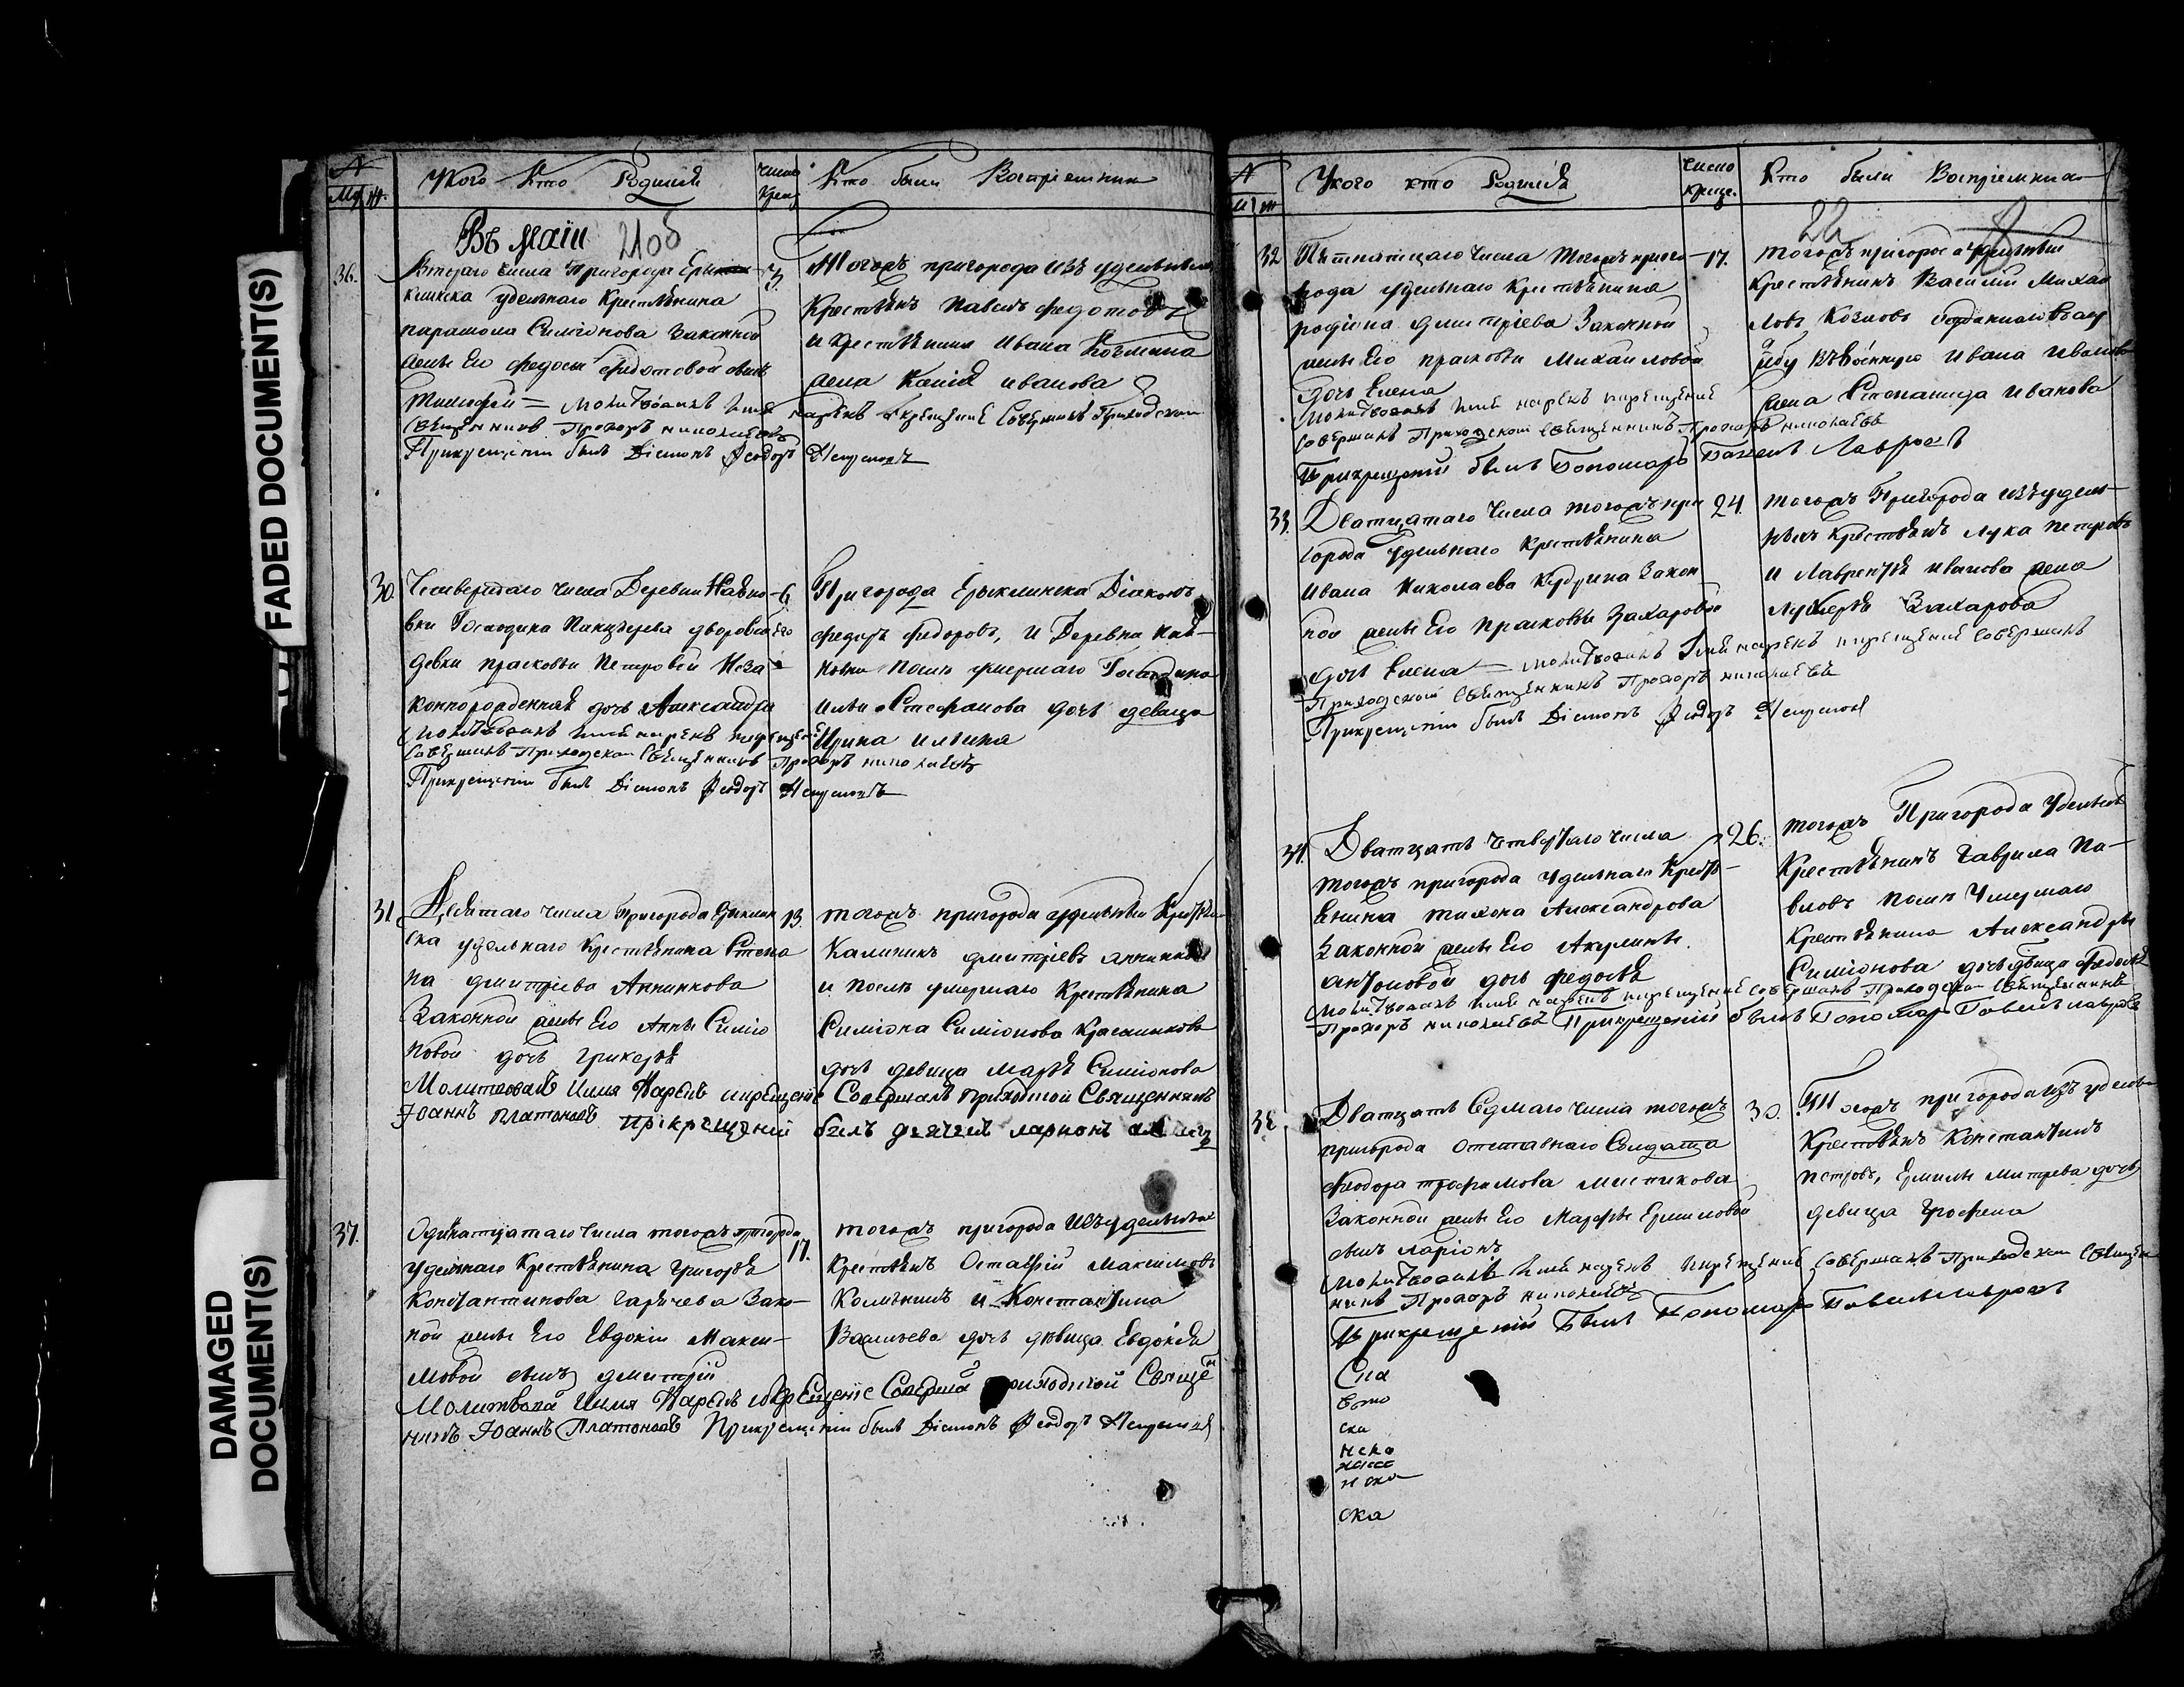 FADED DOCUMENT(S)
DAMAGED
DOCUMENT(S)
№
М. Ж.
У кого кто Родился
число Крещ
Кто были Восприемники
Въ маiи 21об
36.
Втораго числа Пригорода Ерык
клинска удельнаго Крестьянина
Симiонова законной
жены Его Федосьи Федотовой сынъ
Тимофей = Молитвовалъ имя нарекъ и крещение Совершилъ Приходской
Священникъ Прохоръ николаевъ
При крещении былъ Дiаконъ Феодоръ
3.
Тогожъ пригорода изъ удельныхъ
Крестьянъ Павелъ Федотовъ
и Крестьянина Ивана
жена иванова
30.
Четвертаго числа Деревни
вки Господина дворовой его
девки прасковьи Петровой Неза-
коннорожденная дочь Александра
Молитвовалъ имя нарекъ и крещение
Совершилъ Приходской Священникъ Прохоръ николаевъ
При крещении былъ Дiаконъ Феодоръ
6.
Пригорода Ерыклинска Дiаконъ
Федоръ Федоровъ, и Деревни
после умершаго Господина
Ильи Стефанова дочь девица
Ирина ильина
31.
Девятаго числа Пригорода Ерыклин
ска удельнаго Крестьянина Степа
на дмитрiева Аппинкова
Законной жены Его Анны Симiо
новой дочь Гликерья
Молитвовалъ Имя Нарекъ и крещенiе Совершалъ Приходской Священникъ
Iоаннъ Платоновъ При крещенiи былъ дьячекъ ларионъ
13.
тогожъ пригорода удельный
Калиникъ дмитрiевъ
и после умершаго Крестьянина
Симiона Симiонова
дочь девица Марья Симiонова
37.
Одинатцатаго числа тогожъ пригорода
удельнаго Крестьянина Григорья
Константинова Горячева Зако-
ной жены Его Евдокiи Макси-
мовой сынъ дмитрiй
Молитвовалъ Имя Нарекъ и Крещенiе Совершалъ приходской Священ
никъ Iоаннъ Платоновъ При крещении былъ Дiаконъ Феодоръ
17.
тогожъ пригорода Изъ удельныхъ
Крестьянъ Остафiй Максимовъ
и Константина
Васильева дочь девица Евдокья
№
М Ж
У кого кто Родился
число крещ.
Кто были Восприемники
22
32
Пятнатцаго числа Тогожъ приго-
рода удельнаго Крестьянина
родiона дмитрiева Законной
жены Его прасковьи Михайловой
дочь Елена
Молитвовалъ имя нарекъ и крещение
Совершилъ Приходской Священникъ Прохоръ николаевъ
При крещенiи былъ Пономарь Павелъ Лавровъ
17.
тогожъ пригорода удельный
Крестьянинъ Василiй Михай
ловъ Козловъ отданнаго въ слу
жбу въ военную Ивана Иванова
жена Степанида Иванова
33.
Дватцатаго числа тогожъ при
города удельнаго Крестьянина
Ивана Николаева Кудрина Закон
ной жены Его Прасковьи Захаровой
дочь Елена — Молитвовалъ Имя нарекъ и крещение Совершилъ
Приходской Священникъ Прохоръ николаевъ
При крещении былъ Дiаконъ Феодоръ
24.
тогожъ Пригорода изъ удель-
ныхъ Крестьянъ Лука Петровъ
и Лаврентья иванова жена
Лукерья Захарова
34.
Дватцать четвертаго числа
тогожъ пригорода удельнаго Кресть-
янина тихона Александрова
Законной жены Его Акулины
антоновой дочь федосья
Молитвовалъ имя нарекъ и крещение Совершалъ Приходской Священникъ
Прохоръ николаевъ При крещении былъ Пономарь Павелъ лавровъ
26.
тогожъ Пригорода Удельный
Крестьянинъ Гаврила Па-
вловъ после Умершаго
Крестьянина Александры
Симiонова дочь девица Федосья
38.
Дватцать Седмаго числа тогожъ
пригорода отставнаго Солдата
Феодора трофимова
Законной жены Его Марфы Ермиловой
сынъ ларiонъ
Молитвовалъ имя нарекъ и крещение Совершалъ Приходской Священ
никъ Прохоръ николаевъ
При крещенiи Былъ Пономарь Павелъ лавровъ
30.
Тогожъ пригорода изъ удельн
Крестьянъ Константинъ
Петровъ, Ермилы Митрева дочь
девица Грофена
Сiа
ска
нска
нска
ска